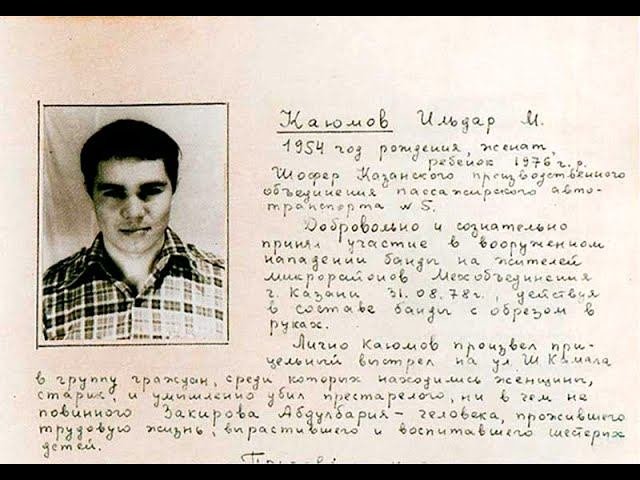 Каюмов Ильдар М.
1954 год рождения, женат,
ребенок 1976 г. р.
Шофер Казанского производственного
объединения пассажирского авто-
транспорта № 5.
Добровольно и сознательно
принял участие в вооруженном
нападении банды на жителей
микрорайонов Мехобъединения
г. Казани 31.08.78 г., действуя
в составе банды с обрезом в
руках.
Лично Каюмов произвел при-
цельный выстрел на ул. Ш. Камала
в группу граждан, среди которых находились женщины,
старик, и умышленно убил престарелого, ни в чем не
повинного Закирова Абдулбария - человека, прожившего
трудовую жизнь, вырастившего и воспитавшего шестерых
детей.